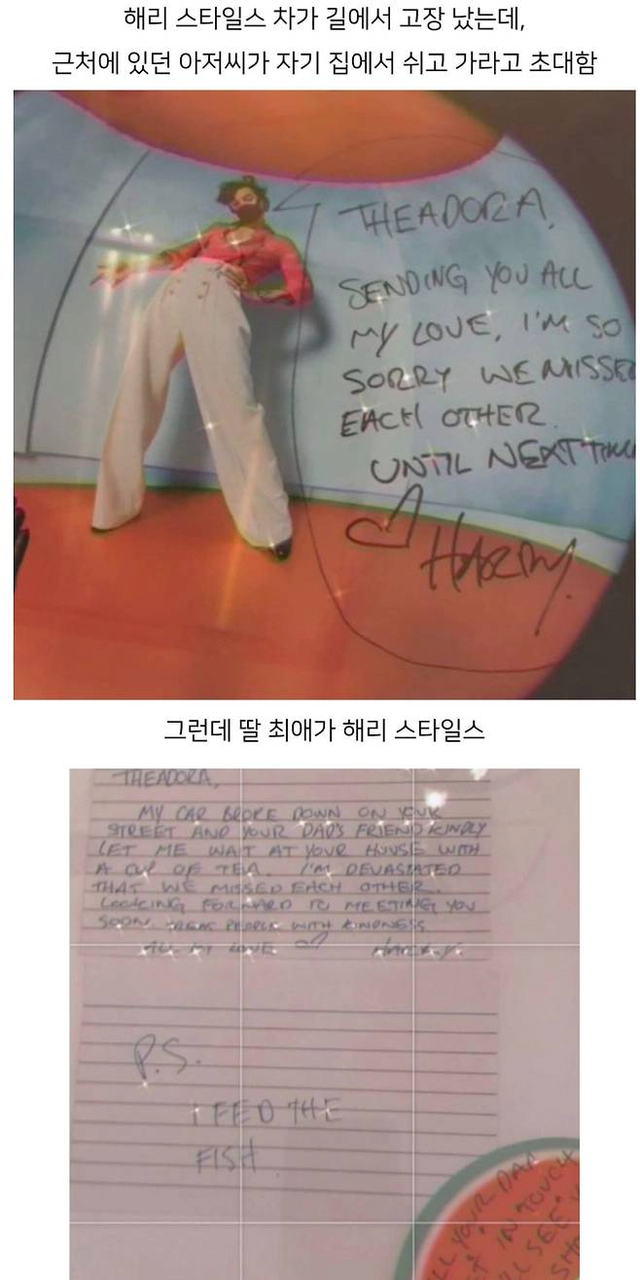 해리 스타일스 차가 길에서 고장 났는데,
근처에 있던 아저씨가 자기 집에서 쉬고 가라고 초대함
THEADORA,
SENDING YOU ALL
MY LOVE, I'M SO
SORRY WE MISSED
EACH OTHER.
UNTIL NEXT TIME
HARRY.
그런데 딸 최애가 해리 스타일스
THEADORA,
MY CAR BROKE DOWN ON YOUR
STREET AND YOUR DAD'S FRIEND KINDLY
LET ME WAIT AT YOUR HOUSE WITH
A CUP OF TEA. I'M DEVASTATED
THAT WE MISSED EACH OTHER.
LOOKING FORWARD TO MEETING YOU
SOON. TREAT PEOPLE WITH KINDNESS
ALL MY LOVE HARRY.
P.S.
I FED THE
FISH
YOUR DAD
IN TOUCH
SEE